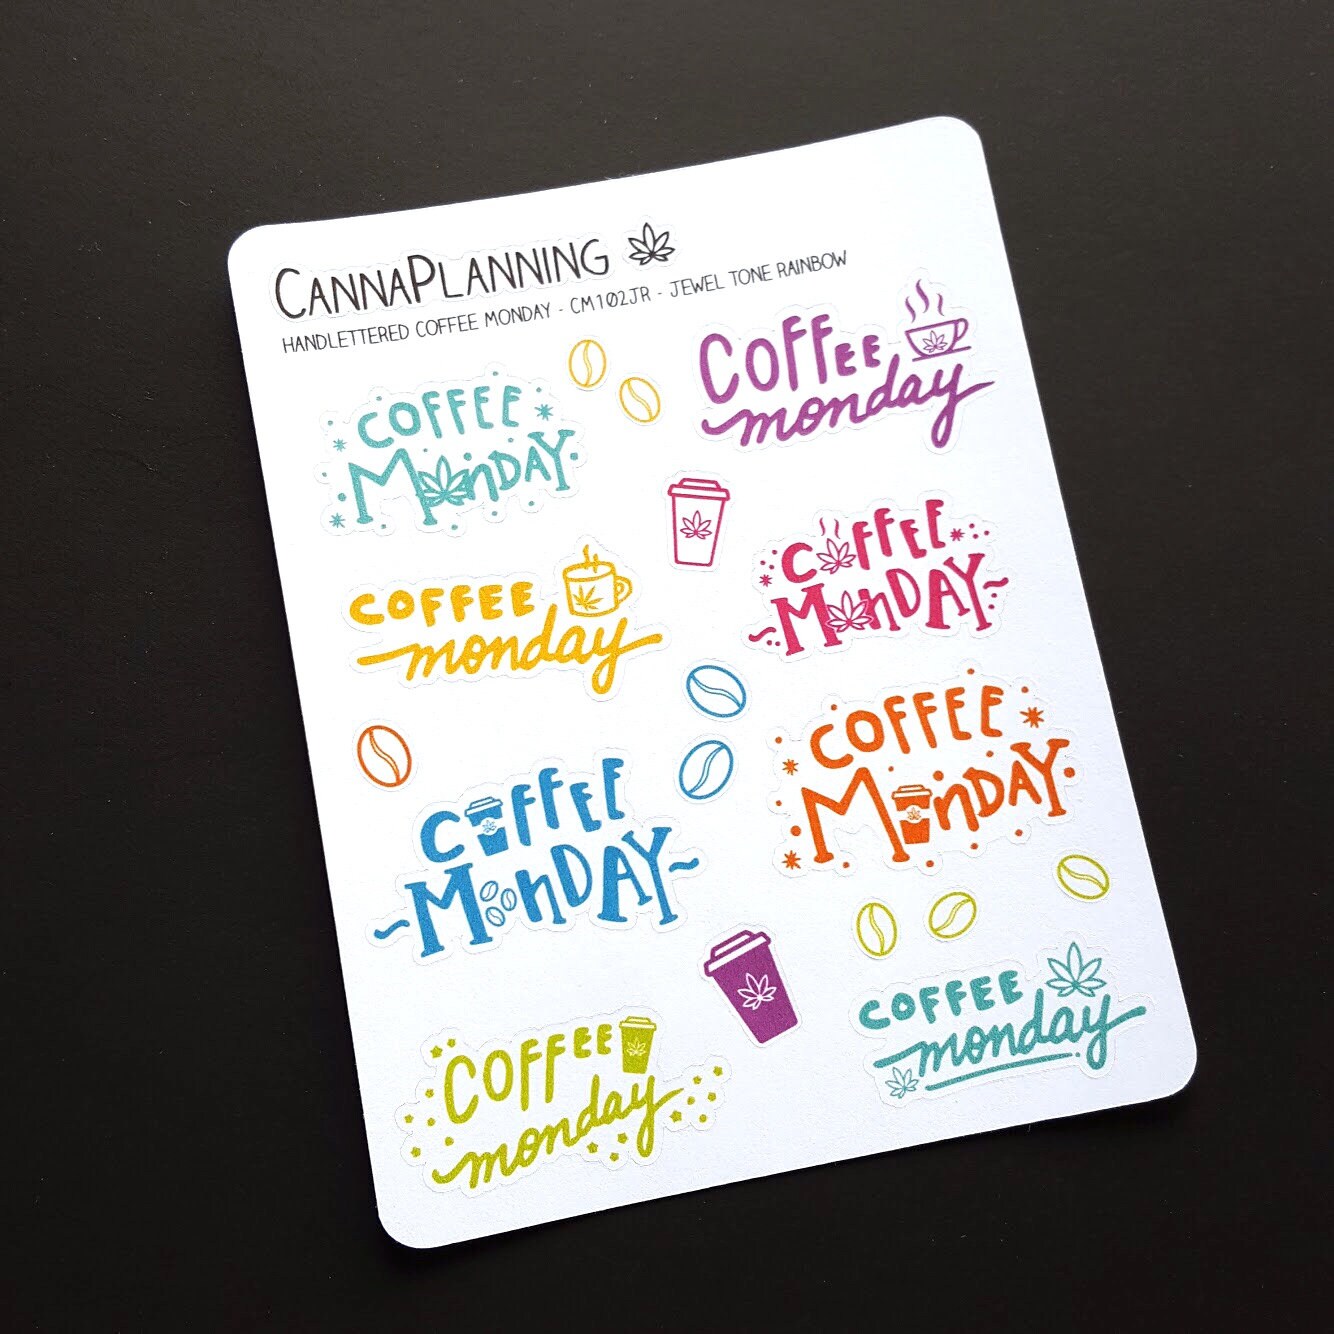 CANNAPLANNING
HANDLETTERED COFFEE MONDAY - CM102JR - JEWEL TONE RAINBOW
COFFEE
MONDAY
COFFEE
monday
COFFEE
monday
COFFEE
MONDAY
COFFEE
MONDAY
COFFEE
MONDAY
COFFEE
monday
COFFEE
monday